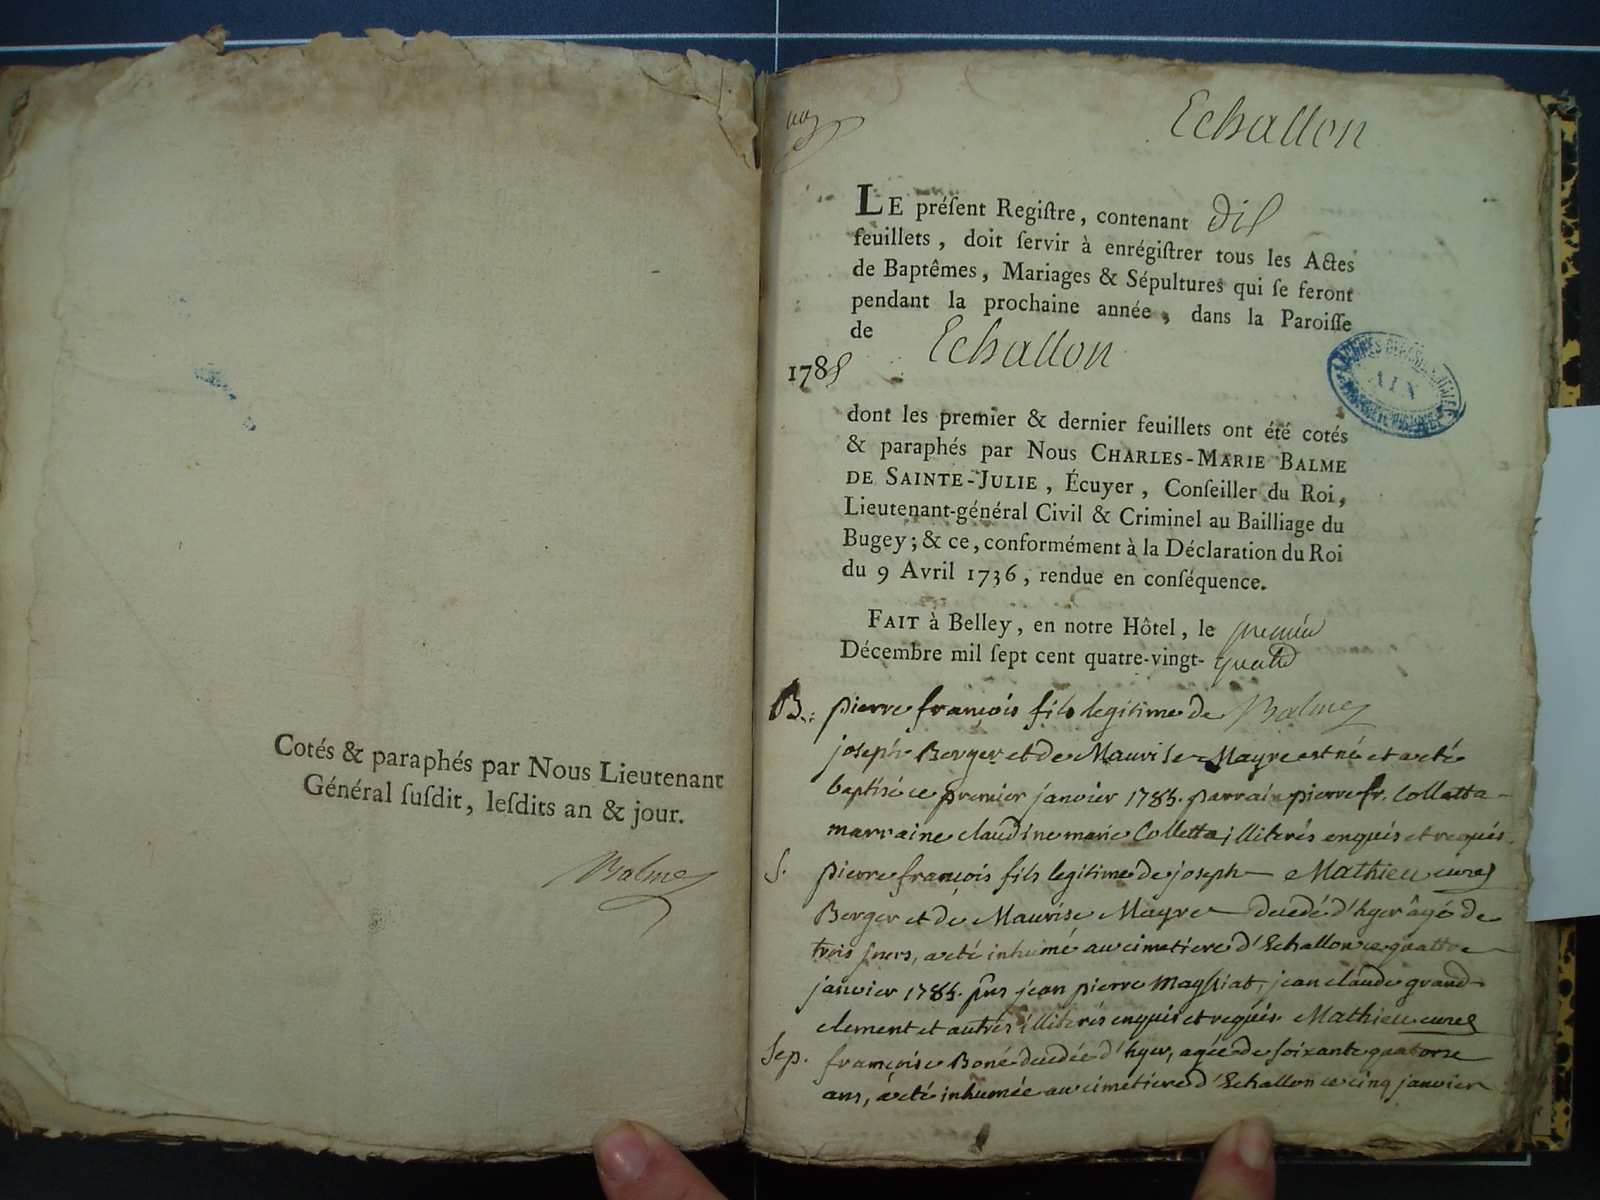 Cotés & paraphés par Nous Lieutenant
Général suſdit, leſdits an & jour.
Balme
Echallon
LE préſent Regiſtre, contenant dix
feuillets, doit ſervir à enrégiſtrer tous les Actes
de Baptêmes, Mariages & Sépultures qui ſe feront
pendant la prochaine année, dans la Paroiſſe
de Echallon
1785
dont les premier & dernier feuillets ont été cotés
& paraphés par Nous CHARLES-MARIE BALME
DE SAINTE-JULIE, Écuyer, Conſeiller du Roi,
Lieutenant-général Civil & Criminel au Bailliage du
Bugey; & ce, conformément à la Déclaration du Roi
du 9 Avril 1736, rendue en conſéquence.
FAIT à Belley, en notre Hôtel, le premier
Décembre mil ſept cent quatre-vingt-quatre
Balme
B. pierre françois fils legitime de
joseph Berger et de Maurise Mayre est né et a eté
baptisé ce premier janvier 1785. parrain pierre fr. Colletta
marraine claudine marie Colletta illiterés enquis et requis.
Mathieu curé
S. pierre françois fils legitime de joseph
Berger et de Maurise Mayre decedé d'hyer âgé de
trois jours, a eté inhumé au cimetiere d'Echallon ce quattre
janvier 1785. pns jean pierre Maghiat, jean claude grand
clement et autres illiterés enquis et requis. Mathieu curé
Sep. françoise Boné decedée d'hyer, agée de soixante quatorze
ans, a eté inhumée au cimetiere d'Echallon ce cinq janvier